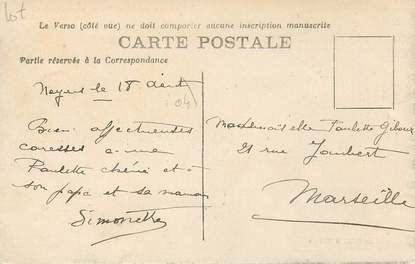 Lot
Le Verso (côté vue) ne doit comporter aucune inscription manuscrite
CARTE POSTALE
Partie réservée à la Correspondance
Noyers le 18 Août
04
Bien affectueuses
caresses a ma
Paulette chérie et à
son papa et sa maman
Simonette
Mademoiselle Paulette Giboux
21 rue Joubert
Marseille